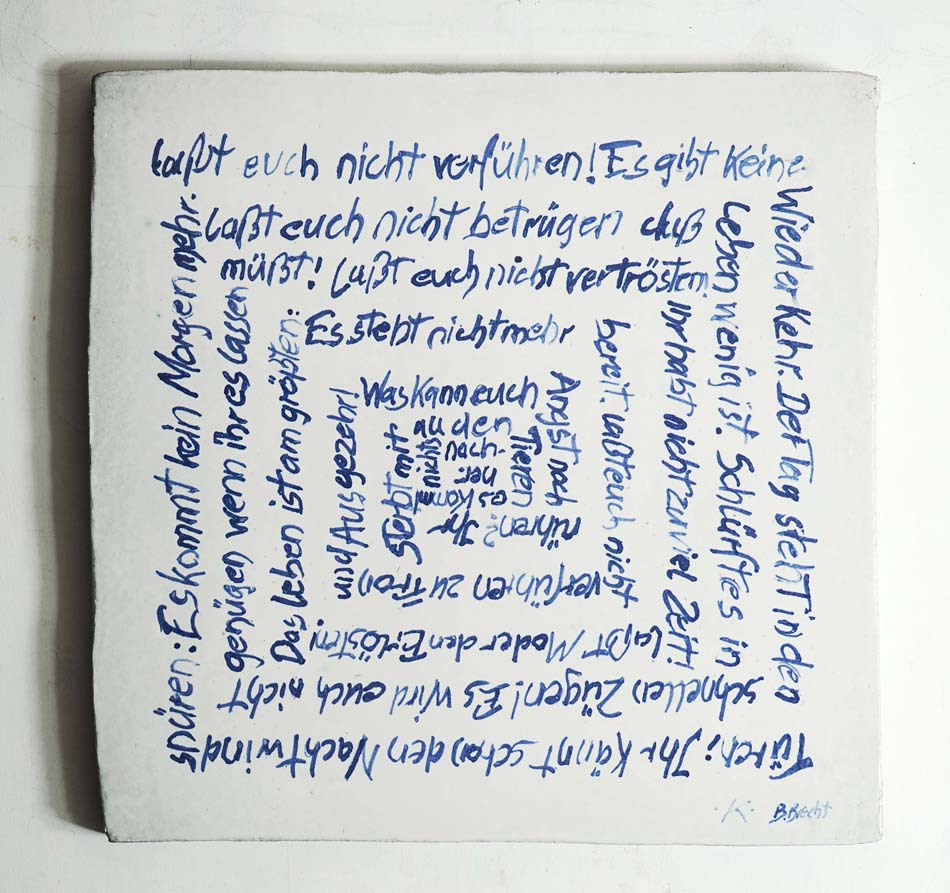 laßt euch nicht verführen! Es gibt keine
Wiederkehr. Der Tag steht in den
Türen; Ihr könnt schon den Nachtwind
spüren: Es kommt kein Morgen mehr.
Laßt euch nicht betrügen daß
Leben wenig ist. Schlürft es in
schnellen Zügen! Es wird euch nicht
genügen wenn ihr es lassen
müßt! Laßt euch nicht vertrösten!
Ihr habt nicht zu viel Zeit!
Laßt Moder den Erlösten!
Das Leben ist am größten:
Es steht nicht mehr
bereit. Laßt euch nicht
verführen zu Fron
und Ausgezehr!
Was kann euch
Angst noch
rühren? Ihr
sterbt mit
allen
Tieren
es kommt
nichts
nach-
her.
·K· B. Brecht